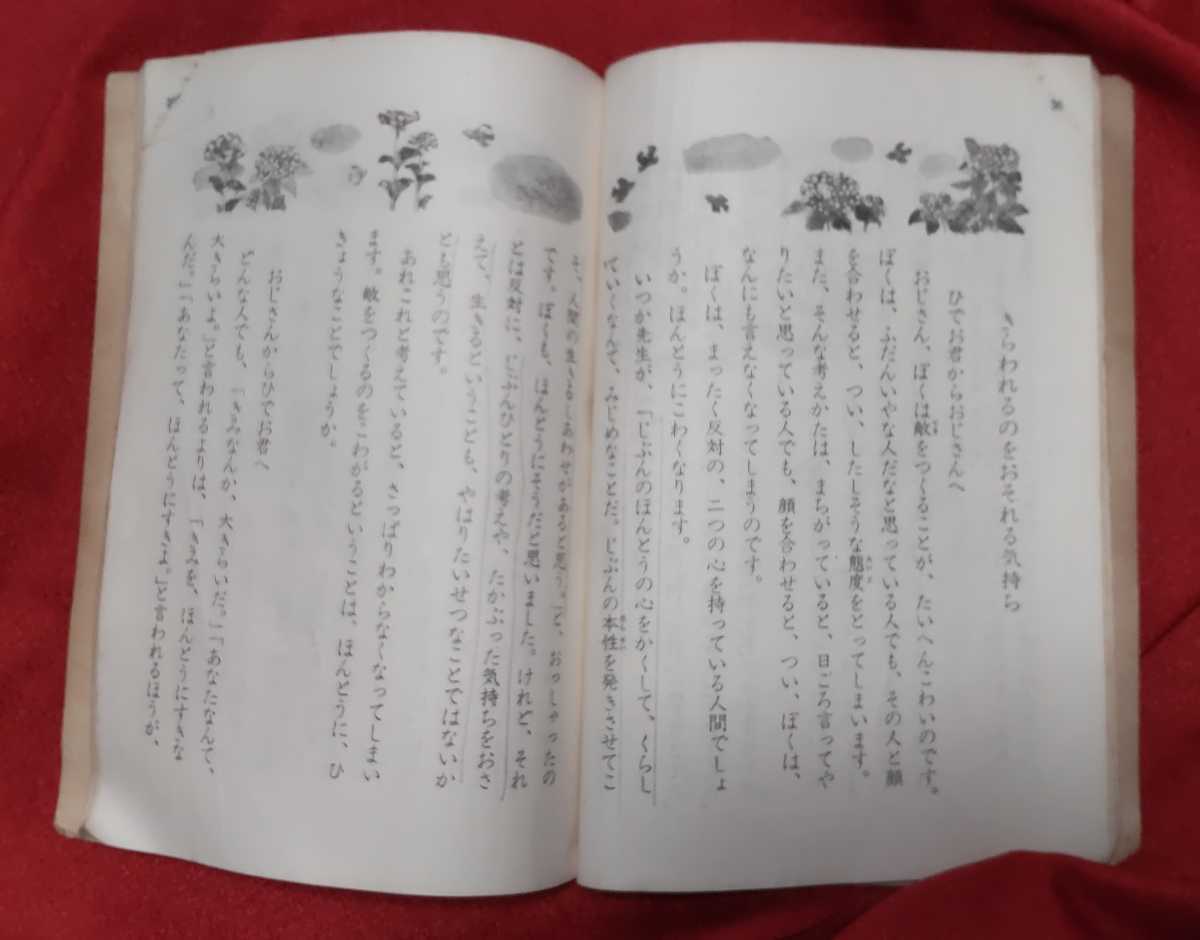 きらわれるのをおそれる気持ち
ひでお君からおじさんへ
おじさん、ぼくは敵をつくることが、たいへんこわいのです。
ぼくは、ふだんいやな人だなと思っている人でも、その人と顔
を合わせると、つい、したしそうな態度をとってしまいます。
また、そんな考えかたは、まちがっていると、日ごろ言ってや
りたいと思っている人でも、顔を合わせると、つい、ぼくは、
なんにも言えなくなってしまうのです。
ぼくは、まったく反対の、二つの心を持っている人間でしょ
うか。ほんとうにこわくなります。
いつか先生が、「じぶんのほんとうの心をかくして、くらし
ていくなんて、みじめなことだ。じぶんの本性を発きさせてこ
そ、人間の生きるしあわせがあると思う。」と、おっしゃったの
です。ぼくも、ほんとうにそうだと思いました。けれど、それ
とは反対に、じぶんひとりの考えや、たかぶった気持ちをおさ
えて、生きるということも、やはりたいせつなことではないか
とも思うのです。
あれこれと考えていると、さっぱりわからなくなってしまい
ます。敵をつくるのをこわがるということは、ほんとうに、ひ
きょうなことでしょうか。
おじさんからひでお君へ
どんな人でも、「きみなんか、大きらいだ。」「あなたなんて、
大きらいよ。」と言われるよりは、「きみを、ほんとうにすきな
んだ。」「あなたって、ほんとうにすきよ。」と言われるほうが、